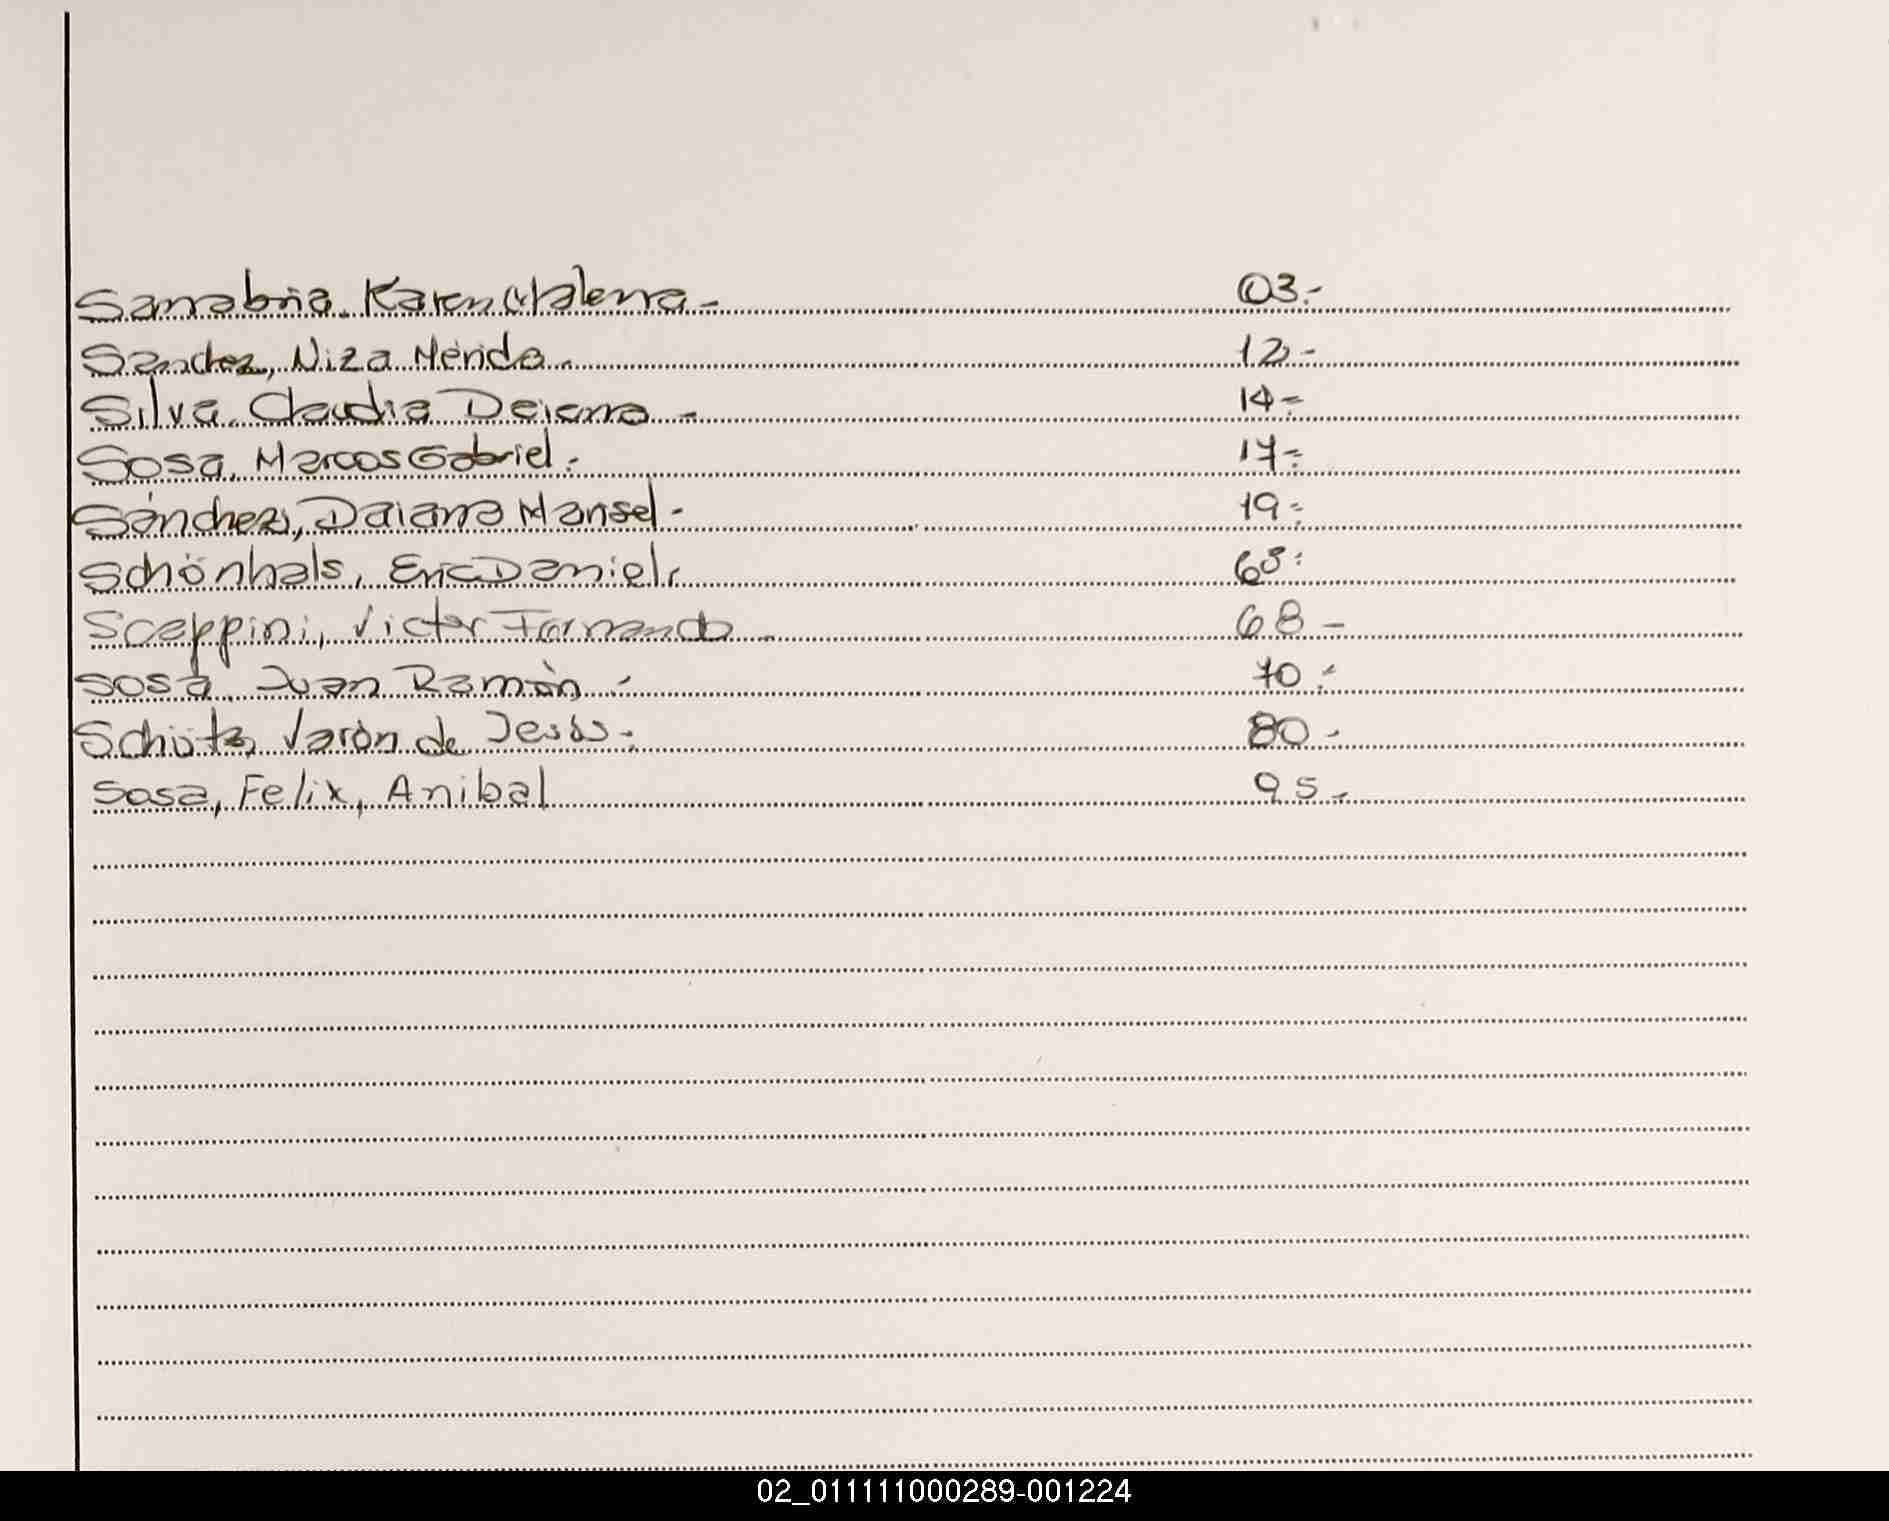 Sanabria, Karen Malena.- 03.-
Sanchez, Niza Mérida.- 12.-
Silva, Claudia Daiana.- 14.-
Sosa, Marcos Gabriel.- 17.-
Sánchez, Daiana Marisel.- 19.-
Schönhals, Eric Daniel.- 63.-
Scappini, Victor Fernando.- 68.-
Sosa, Juan Ramón.- 70.-
Schütz, de Jesús.- 80.-
Sosa, Felix, Anibal 95.-
02_011111000289-001224